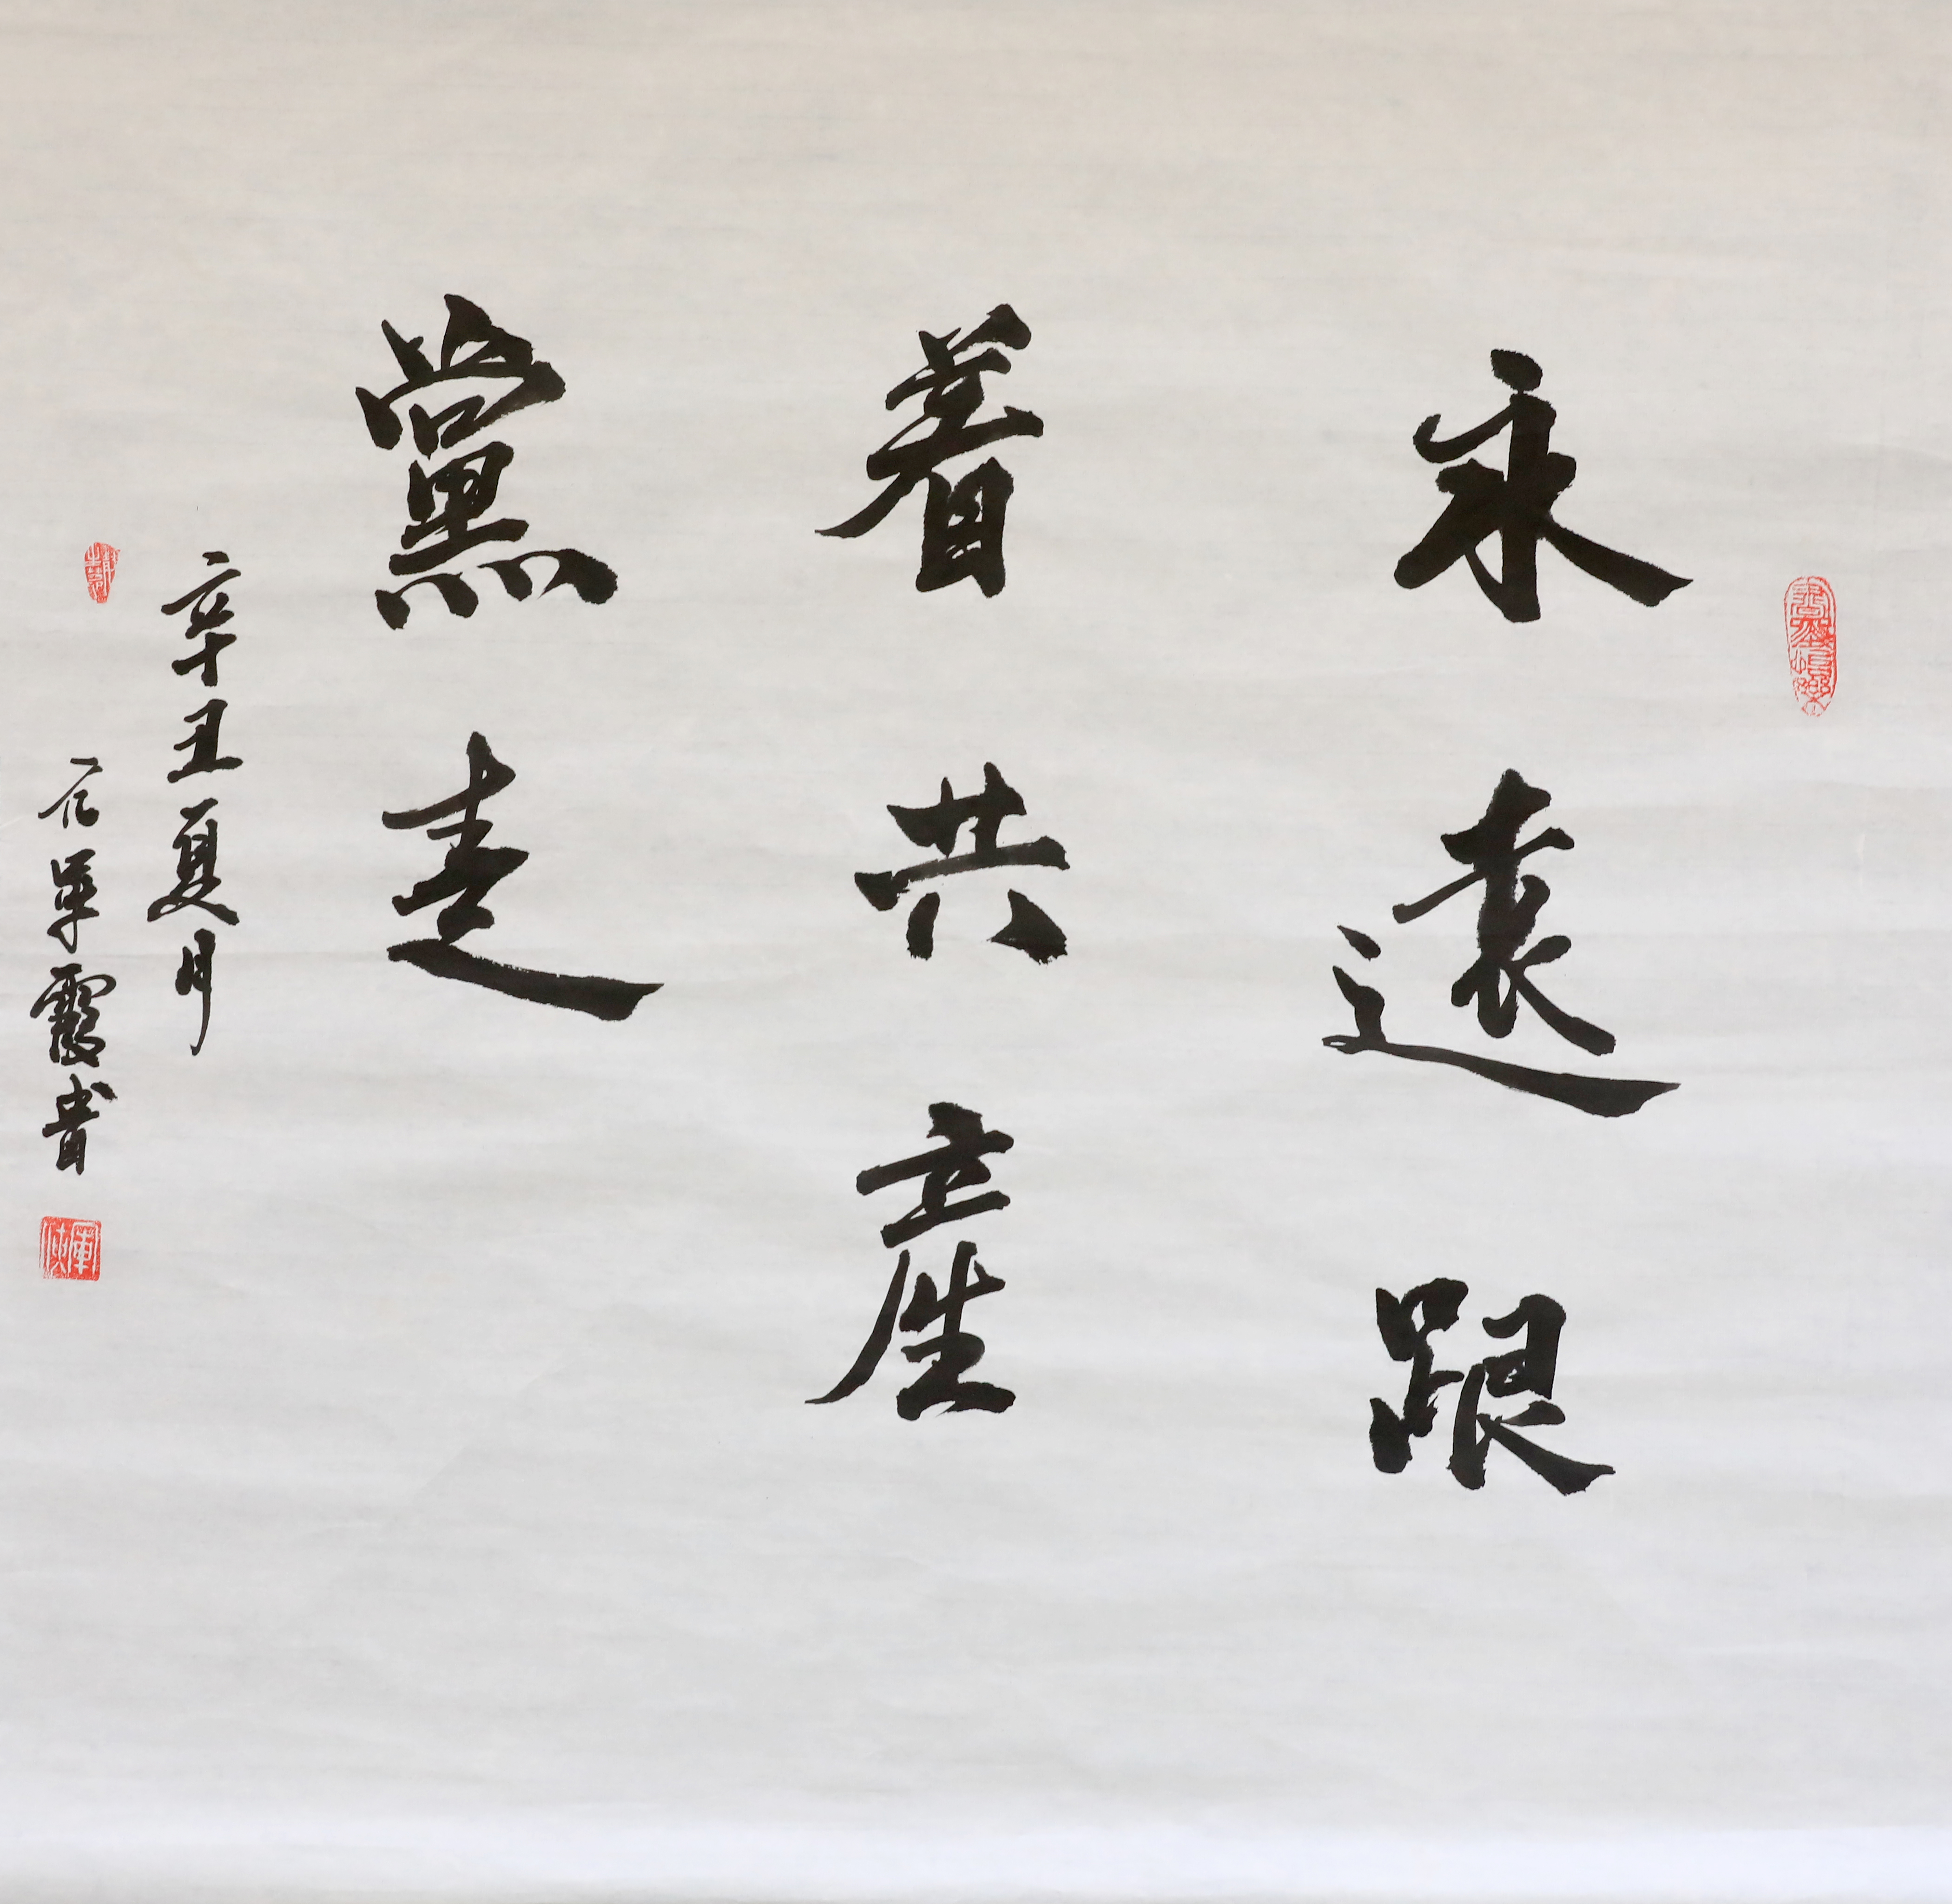 永遠跟
着共産
黨走
辛丑夏月
霞書